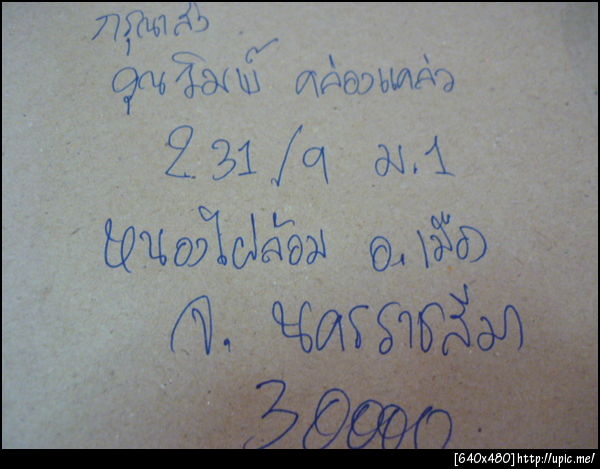 กรุณาส่ง
คุณริมพ์ คล่องแคล่ว
231/9 ม.1
หนองไผ่ล้อม อ.เมือง
จ. นครราชสีมา
30000
[640x480]http://upic.me/